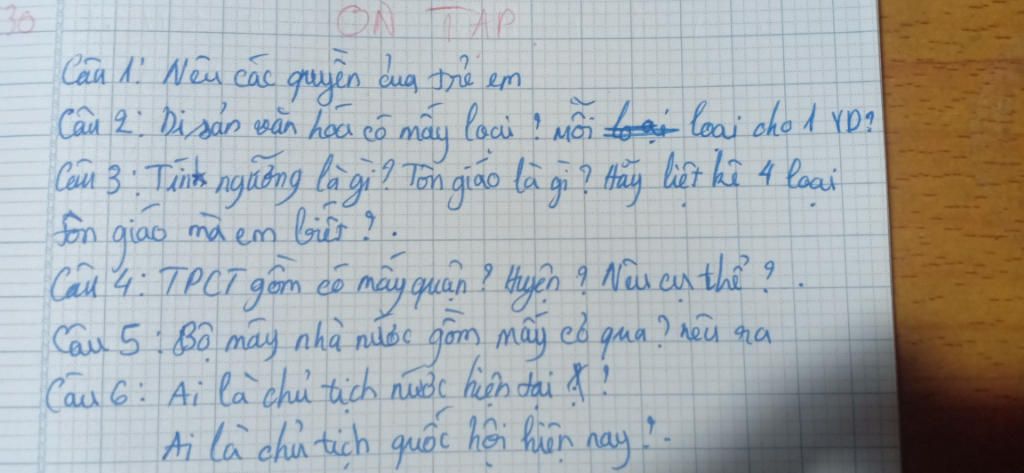 30
ÔN TẬP
Câu 1: Nêu các quyền của trẻ em
Câu 2: Di sản văn hoá có mấy loại? Mỗi loại cho 1 VD?
Câu 3: Tín ngưỡng là gì? Tôn giáo là gì? Hãy liệt kê 4 loại
tôn giáo mà em biết?.
Câu 4: TPCT gồm có mấy quận? Huyện? Nêu cụ thể?.
Câu 5: Bộ máy nhà nước gồm mấy cơ qua? nêu ra
Câu 6: Ai là chủ tịch nước hiện đại?
Ai là chủ tịch quốc hội hiện nay?.